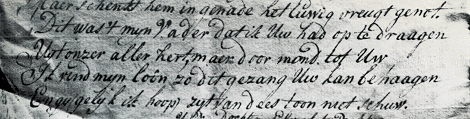 Maer schenkt hem in genade het Euwig vreugt genot.
Dit was't mijn Vader dat ik Uw had op te draagen
Uyt onzer aller hert, maer door mond. tot Uw
Ik reins mijn loon zo dit gezang Uw kan behaagen
gelijk ik hoop, zyt van dees toon niet schuw.